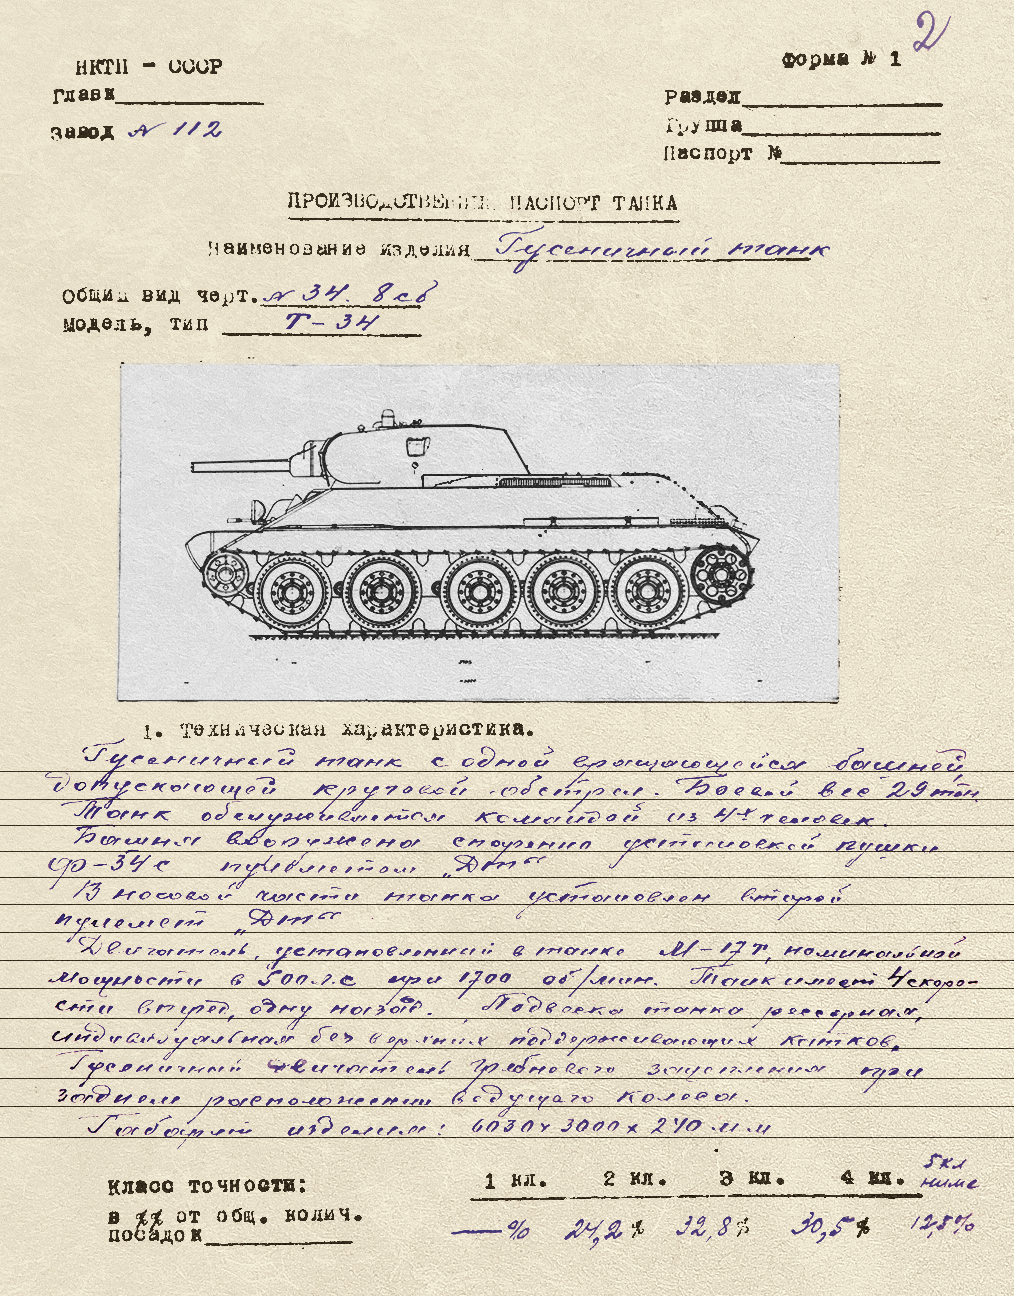 2
НКТП - СССР
Форма № 1
Главк
Раздел
Завод № 112
Группа
Паспорт №
ПРОИЗВОДСТВЕННЫЙ ПАСПОРТ ТАНКА
Наименование изделия Гусеничный танк
Общий вид черт. № 34. 8сб
Модель, тип Т-34
1. Техническая характеристика.
Гусеничный танк с одной вращающейся башней,
допускающей круговой обстрел. Боевой вес 29 тн.
Танк обслуживается командой из 4х человек.
Башня вооружена спаренно установкой пушки
Ф-34 с пулеметом „Дт“
В носовой части танка установлен второй
пулемет „Дт“
Двигатель, установленный в танке М-17Т, номинальной
мощности в 500 л.с при 1700 об/мин. Танк имеет 4 скоро-
сти вперед, одну назад. Подвеска танка рессорная,
индивидуальная без верхних поддерживающих катков.
Гусеничный движитель гребневого зацепления при
заднем расположении ведущего колеса.
Габарит изделия: 6030 х 3000 х 240 мм
Класс точности: 1 кл. 2 кл. 3 кл. 4 кл. 5 кл
ниже
в %% от общ. колич.
посадок — % 24,2 % 32,8 % 30,5 % 12,5 %